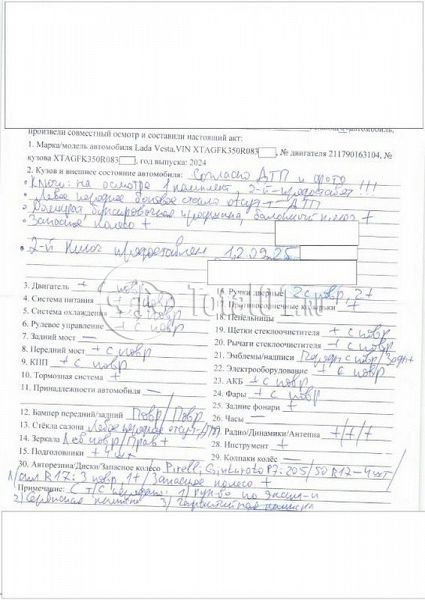 произвели совместный осмотр и составили настоящий акт:
1. Марка/модель автомобиля Lada Vesta,VIN XTAGFK350R083 , № двигателя 211790163104, №
кузова XTAGFK350R083 , год выпуска: 2024
2. Кузов и внешнее состояние автомобиля: Согласно ДТП и фото
• Ключи: на осмотре 1 комплект, 2-й предоставят !!!
• Левое переднее боковое стекло отсут-т ДТП
• Домкрат, буксировочная проушина, балонный ключ +
• Запасное колесо +
• 2-й ключ предоставлен 12.09.25
3. Двигатель + с повр
4. Система питания + с повр
5. Система охлаждения + с повр
6. Рулевое управление + с повр
7. Задний мост —
8. Передний мост + с повр
9. КПП + с повр
10. Тормозная система +
11. Принадлежности автомобиля —
12. Бампер передний/задний Повр/Повр
13. Стёкла салона Левое переднее отсут-т ДТП
14. Зеркала Лев повр/Прав +
15. Подголовники + 4 шт
16. Ручки дверные 2 с повр, 2+
17. Противосолнечные козырьки +
18. Пепельницы
19. Щетки стеклоочистителя + с повр
20. Рычаги стеклоочистителя + с повр
21. Эмблемы/надписи Передн с повр/Задн+
22. Электрооборудование + с повр
23. АКБ + с повр
24. Фары + с повр
25. Задние фонари +
26. Часы —
27. Радио/Динамики/Антенна +/+/+
28. Инструмент +
29. Колпаки колёс —
30. Авторезина/Диски/Запасное колесо Pirelli Cinturato P7: 205/50 R17-4шт/
R17: 3 повр, 1+/Запасное колесо +
Примечание: С т/с передано: 1) рук-во по экспл-и
2) Сервисная книжка 3) Гарантийная книжка